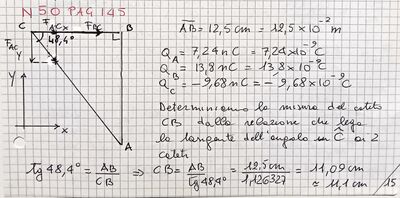 N 50 PAG 145
C F_ACx F_BC B
48,4°
F_AC
Y
Y
x
A
AB = 12,5 cm = 12,5 × 10⁻² m
Q_A = 7,24 nC = 7,24×10⁻⁹C
Q_B = 13,8 nC = 13,8×10⁻⁹C
Q_C = -9,68 nC = -9,68×10⁻⁹C
Determiniamo la misura del cateto
CB dalla relazione che lega
la tangente dell'angolo in Ĉ ai 2
cateti
tg 48,4° = AB/CB ⇒ CB = AB/tg 48,4° = 12,5 cm/1,126327 = 11,09 cm
≃ 11,1 cm
/15